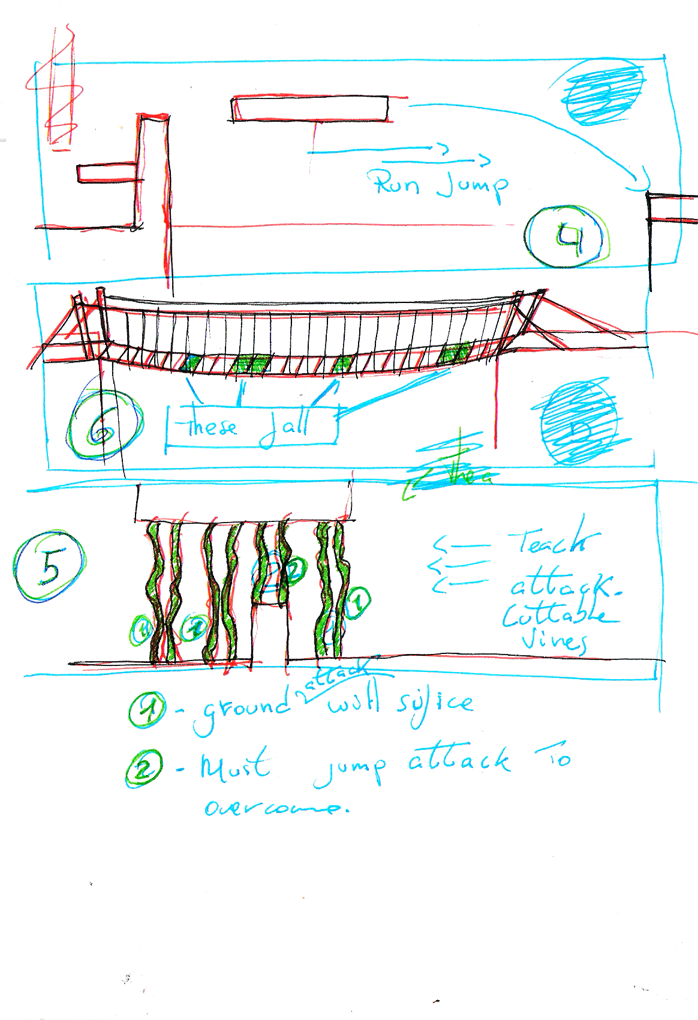 Run Jump
4
These fall
6
5
Teach
attack.
Cuttable
Vines
2
1
1
1
1 - ground attack will sifice
2 - Must jump attack To
overcome.